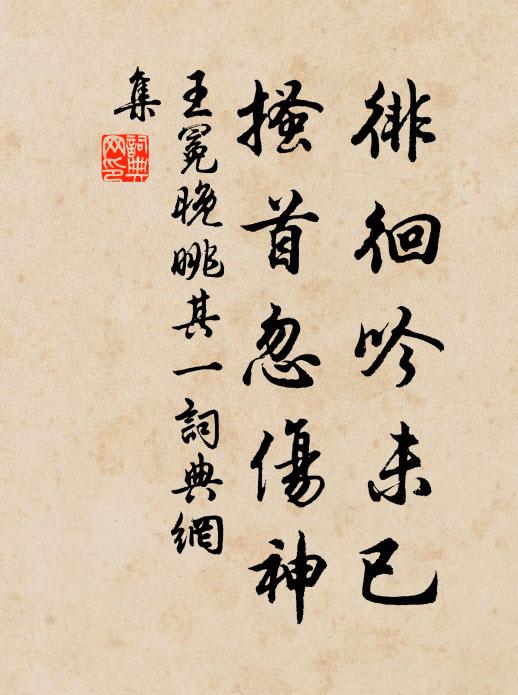 徘徊吟未已
搔首忽傷神
王冕晚眺其一詞典網
集
詞典
网印